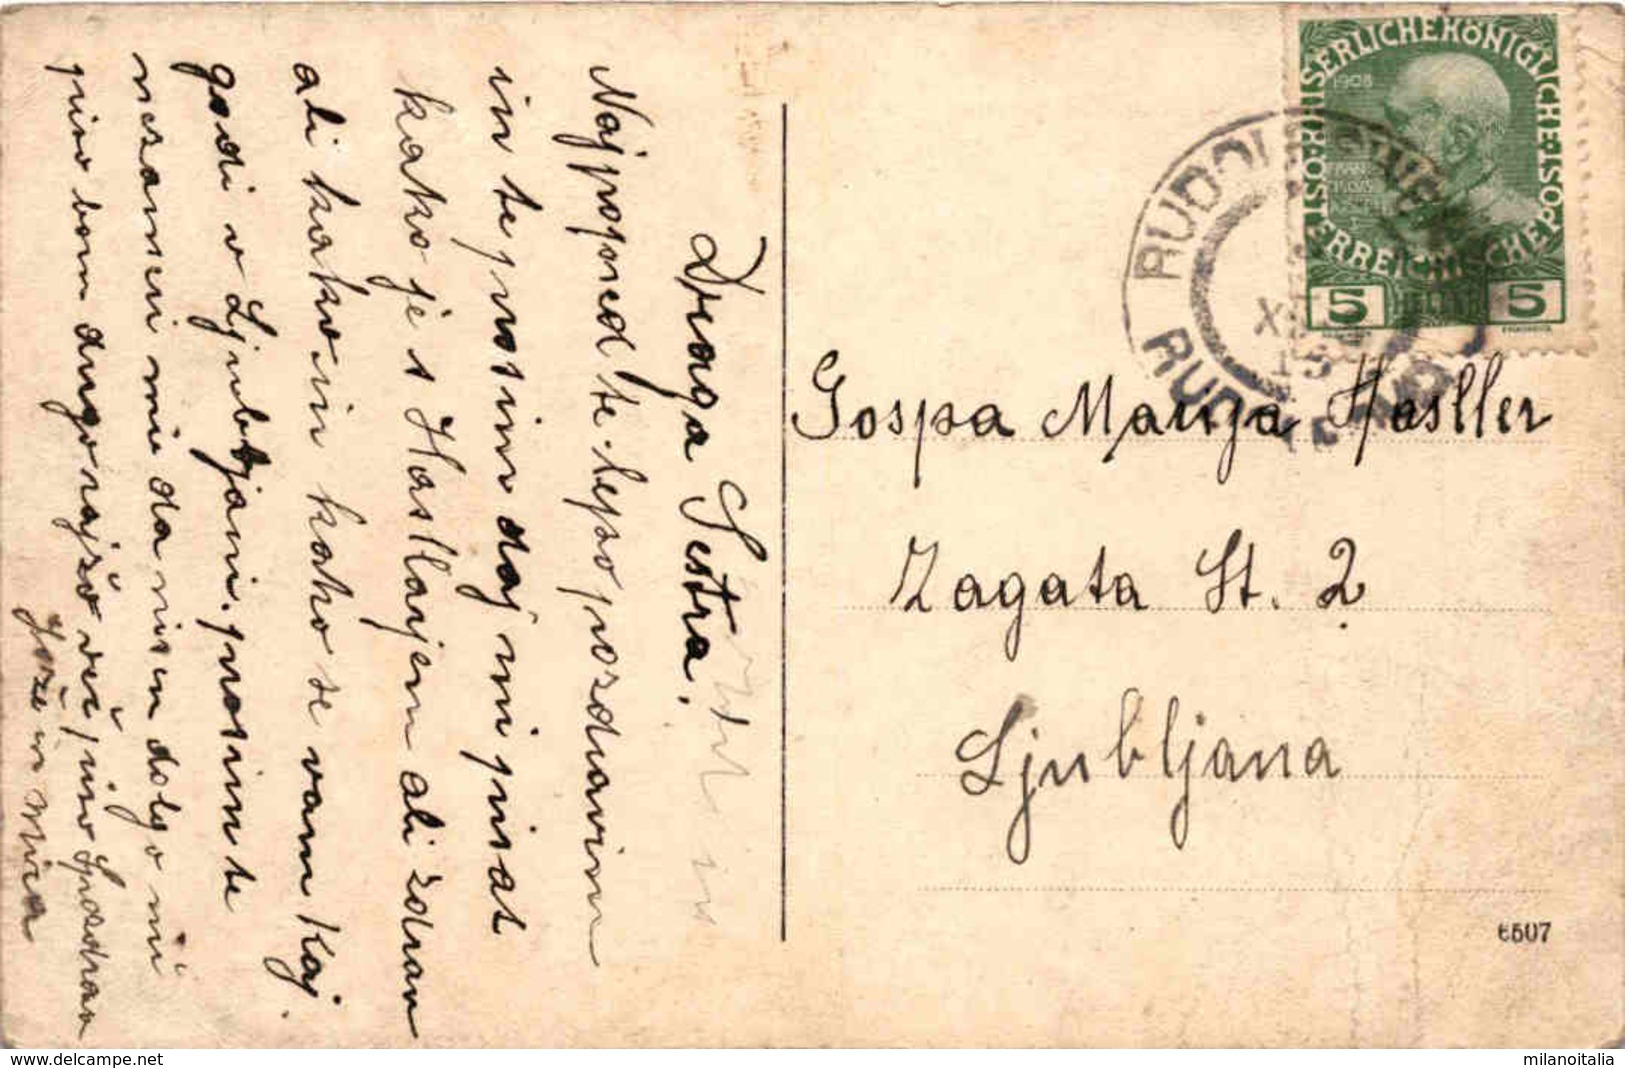 Draga Sestra.
Najpopred te lepo pozdravim
in te prosim daj mi pisat
kako je s Hasllarjem ali zdrav
ali kakoin kako se vam kaj
godi v Ljubljani. prosim te
nezameri mi da nisem dolgo mi
piso bom drugorajžo več piso Spozdrav
Jože in Mica
KAISERLICHE KÖNIGLICHE ÖSTERREICHISCHE POST
1908
5
5
RUDOLFSWERT
XII
15
Gospa Marija Hasller
Zagata St. 2
Ljubljana
6507
www.delcampe.net
milanoitalia